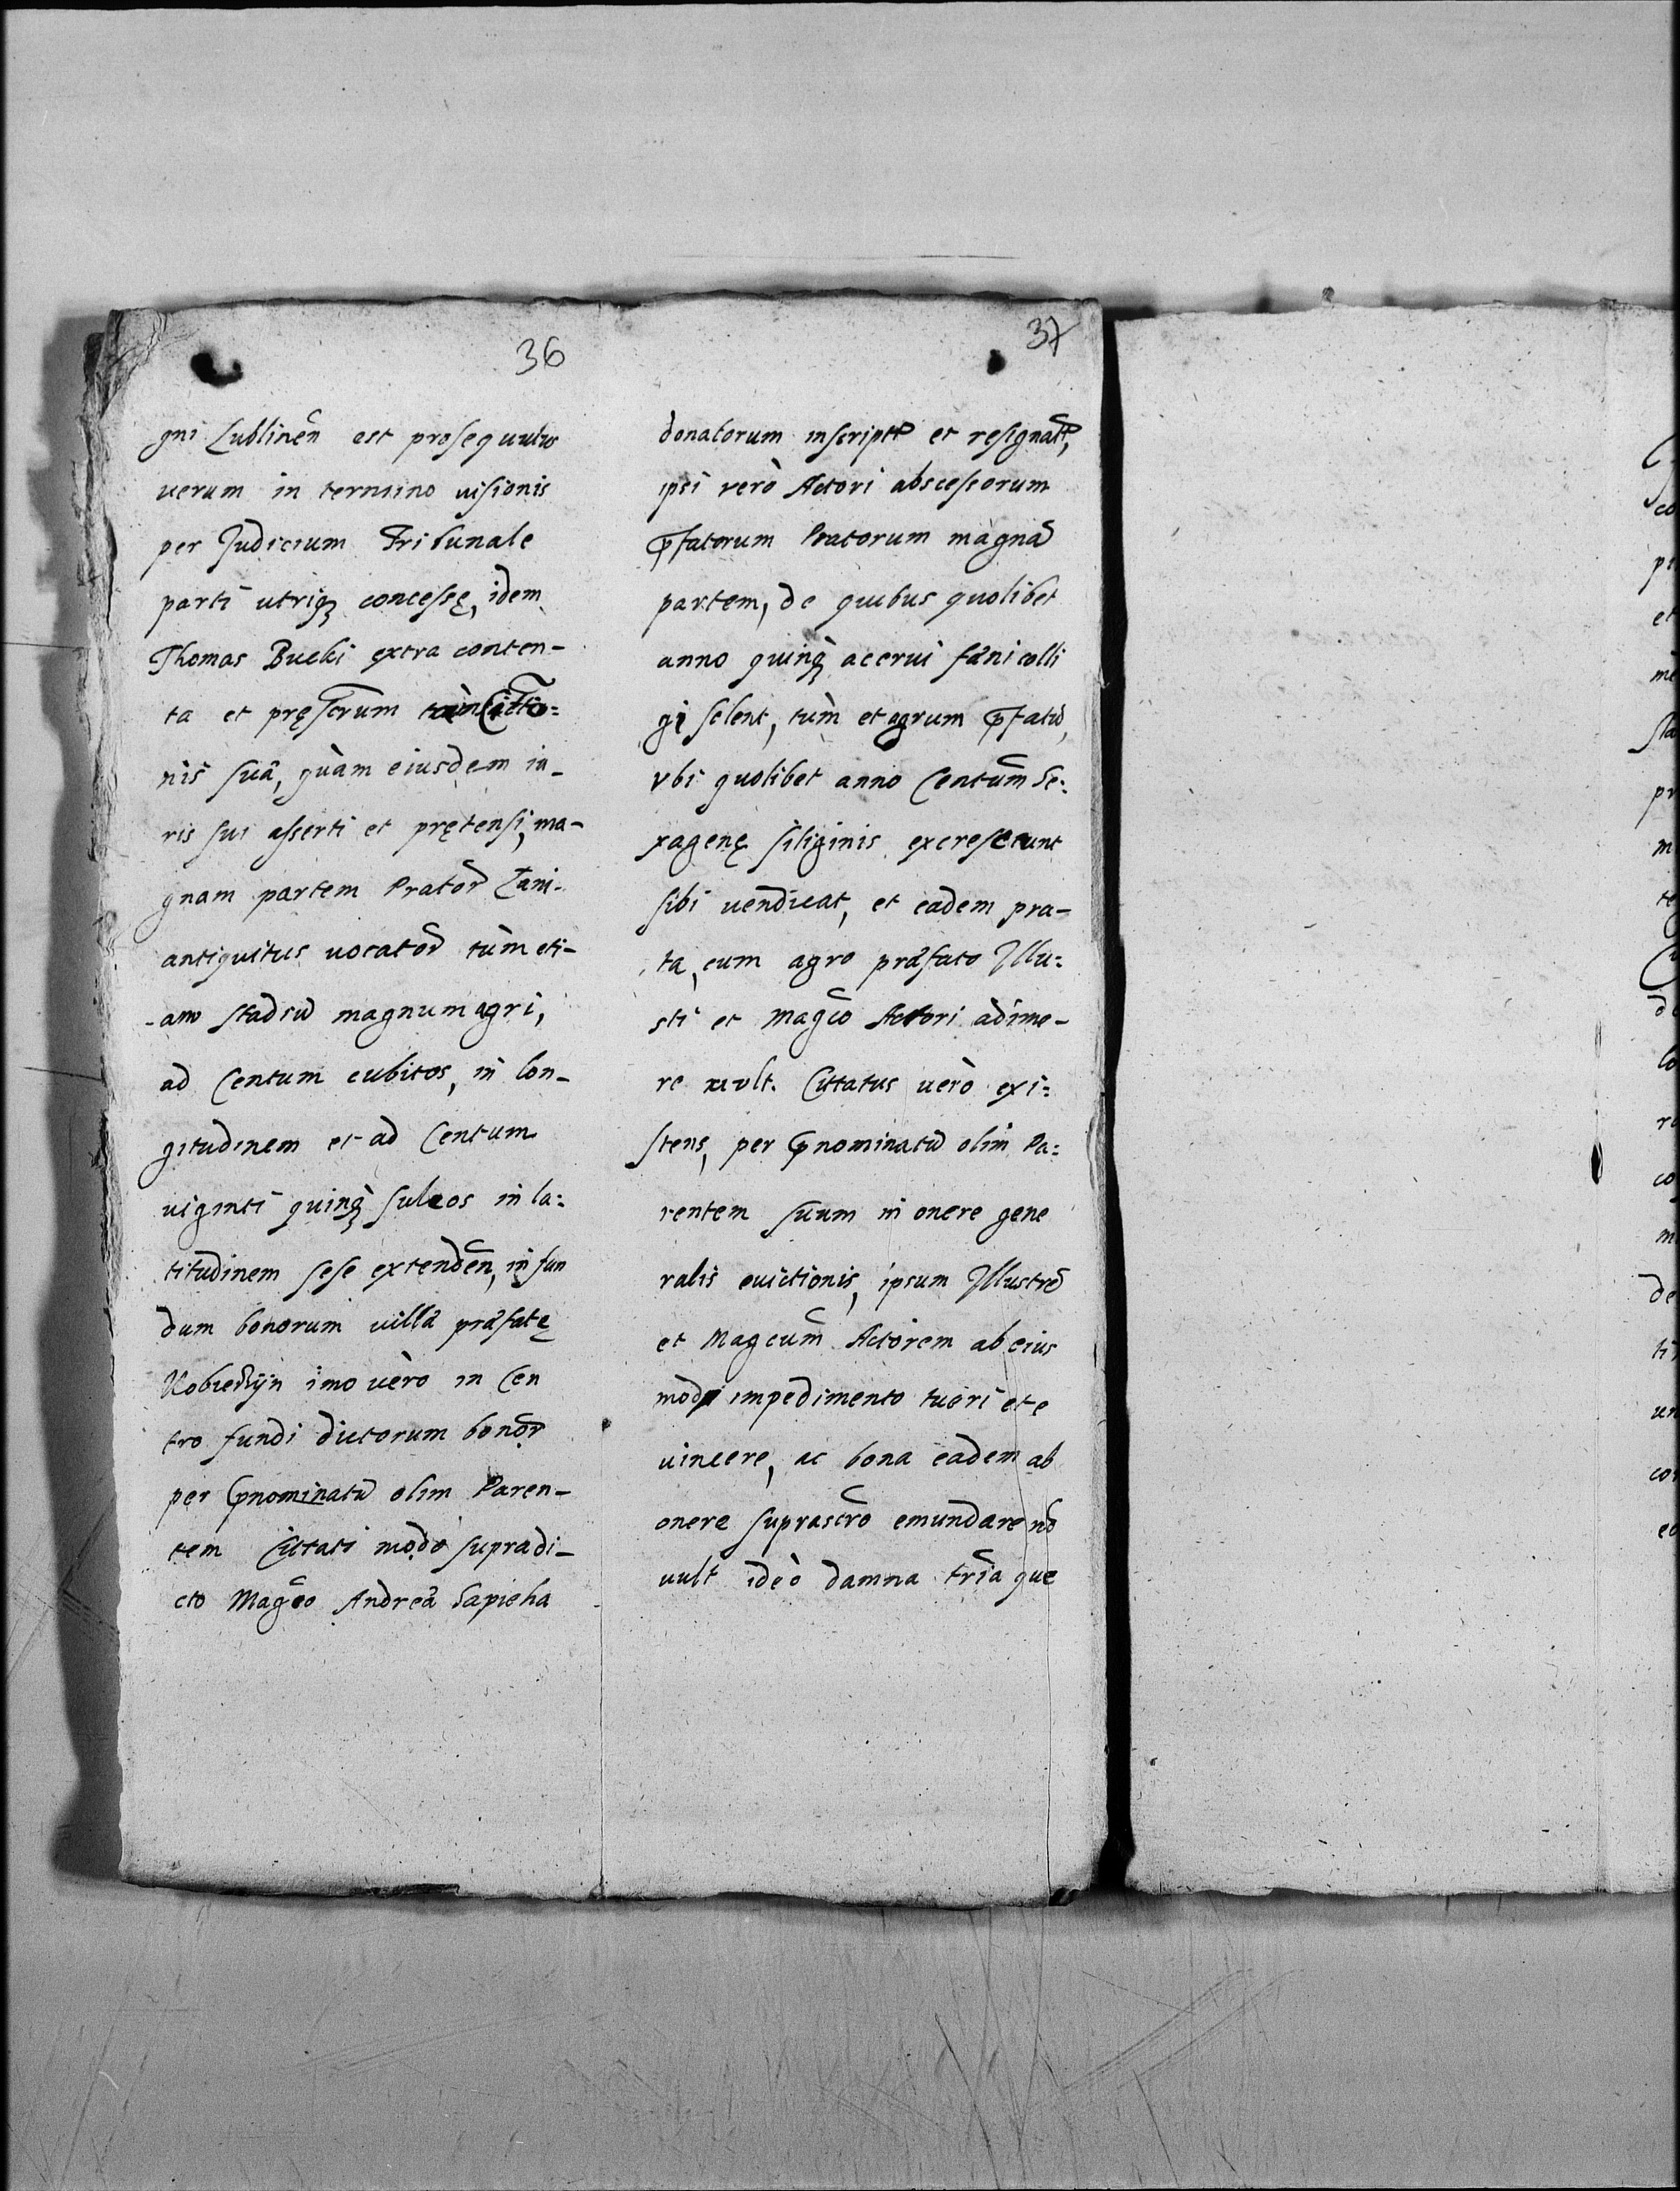 36
gni Lublinēn est prosequutus
uerum in termino uisionis
per Judicium Tribunale
parti utriqꝫ concessę, idem
Thomas Bucki extra conten-
ta et pręscrum tam Citto=
nis suæ, quàm eiusdem iu-
ris sui asserti et prętensi, ma-
gnam partem Prator Łani
antiquitus uocator tùm eti-
am stadiũ magnum agri,
ad Centum cubitos, in lon-
gitudinem et ad Centum
uiginti quinqꝫ sulcos in la=
titudinem sese extendēn, in fun
dum bonorum uillæ præfatę
imo uèro in Cen
tro fundi dictorum bonor
per Pnominatũ olim Paren-
tem Cittati modo supradi-
cto Magco Andreæ Sapieha
37
donatorum inscript et resignat,
ipsi verò Actori abscessorum
Pfatorum Pratorum magnã
partem, de quibus quolibet
anno quinqꝫ acerui fæni colli
gi solent, tùm et agrum Pfatũ,
vbi quolibet anno Centum Se=
xagenę siliginis excrescunt
sibi uendicat, et eadem pra-
ta, cum agro præfato Illu=
sti et Magco Actori adime-
re uult. Cittatus uerò exi=
stens, per Pnominatũ olim Pa=
rentem suum in onere gene
ralis euictionis, ipsum Illustrẽ
et Magcum Actorem ab eius
modi impedimento tueri et e
uincere, ac bona eadem ab
onere suprascro emundare nõ
uult ideò damna tria que